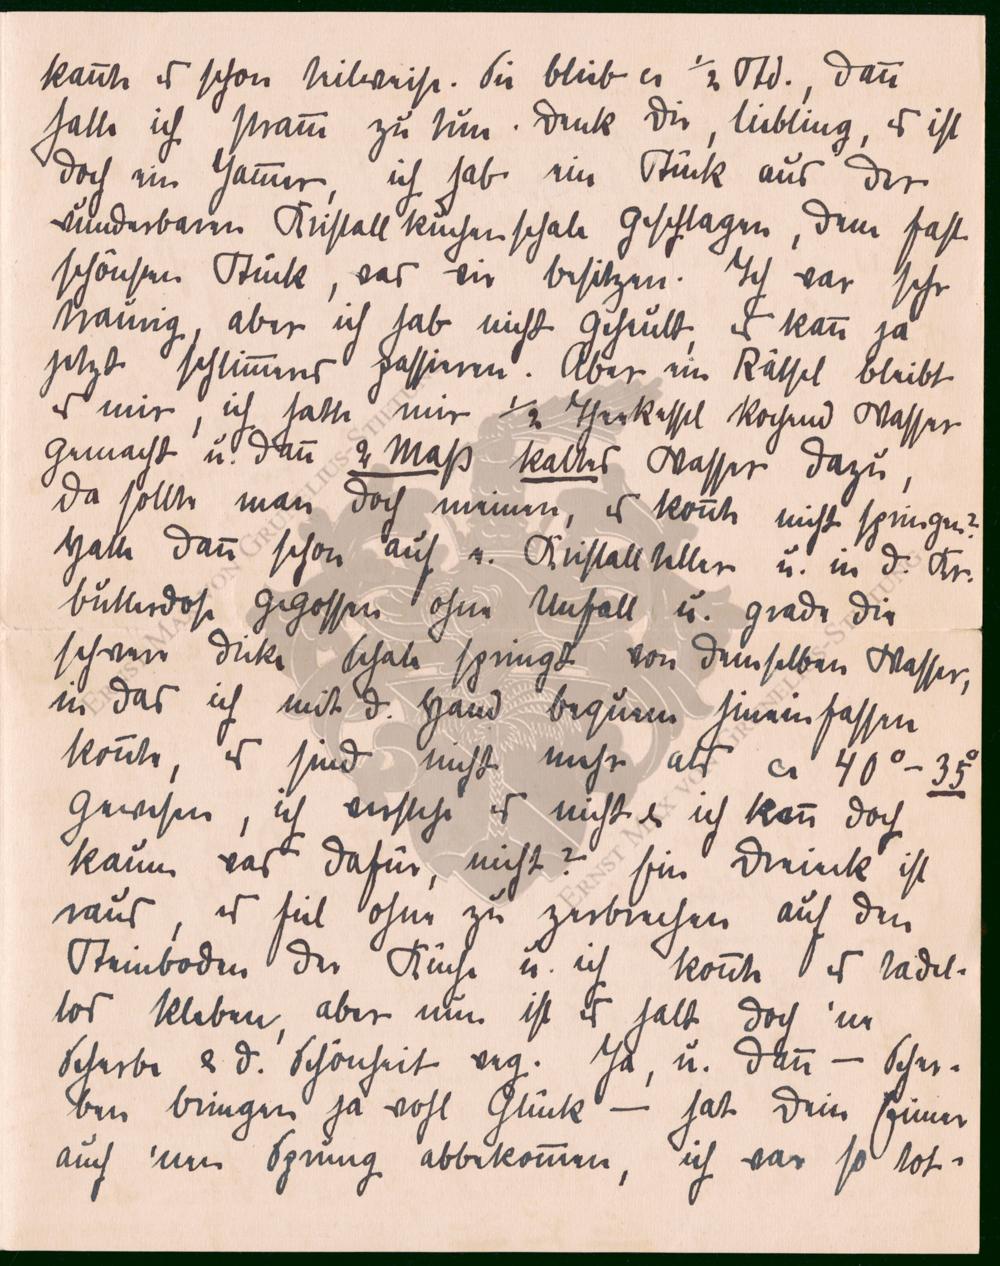 kannte es schon teilweise. Sie blieb ca ½ Std., dann
hatte ich stramm zu tun. Denk Dir, Liebling, es ist
doch ein Jammer, ich hab ein Stück aus der
wunderbaren Kristallkuchenschale geschlagen, dem fast
schönsten Stück, was wir besitzen. Ich war sehr
traurig, aber ich hab nicht geheult, es kann ja
jetzt schlimmeres passieren. Aber ein Rätsel bleibt
es mir, ich hatte mir ½ Theekessel kochend Wasser
gemacht u. dann 2 Maß kaltes Wasser dazu,
da sollte man doch meinen, es könnte nicht springen?
Hatte dann schon auf e. Kristallteller u. in d. Kr.
butterdose gegossen ohne Unfall u. grade die
schwere dicke Schale springt von demselben Wasser,
in das ich mit d. Hand bequem hineinfassen
konnte, es sind nicht mehr als ca 40° - 35°
gewesen, ich verstehe es nicht & ich kann doch
kaum was dafür, nicht? Ein Dreieck ist
raus, es fiel ohne zu zerbrechen auf den
Steinboden der Küche u. ich konnte es tadel-
los kleben, aber nun ist es halt doch 'ne
Scherbe & d. Schönheit weg. Ja, u. dann — Scher-
ben bringen ja wohl Glück — hat Dein
auch 'nen Sprung abbekommen, ich war so tot-
ERNST MAX VON GRUNELIUS-STIFTUNG
ERNST MAX VON GRUNELIUS-STIFTUNG